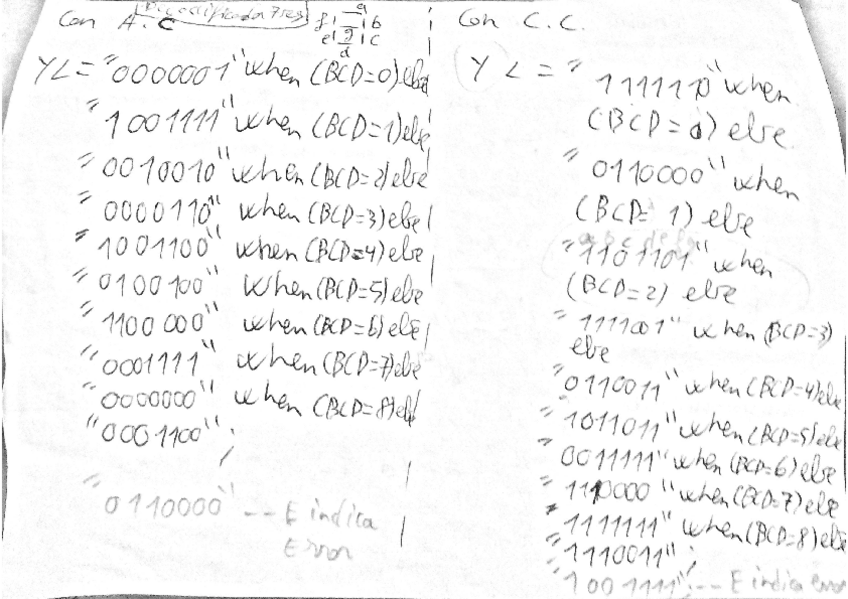 Con A.C
a
f b
g
e c
d
Y<="0000001" when (BCD=0) else
"1001111" when (BCD=1) else
"0010010" when (BCD=2) else
"0000110" when (BCD=3) else
"1001100" when (BCD=4) else
"0100100" when (BCD=5) else
"1100000" when (BCD=6) else
"0001111" when (BCD=7) else
"0000000" when (BCD=8) else
"0001100";
"0110000" -- E indica
Error
Con C.C.
Y <= "1111110" when
(BCD=0) else
"0110000" when
(BCD=1) else
a b c d e f g
"1101101" when
(BCD=2) else
"1111001" when (BCD=3)
else
"0110011" when (BCD=4) else
"1011011" when (BCD=5) else
"0011111" when (BCD=6) else
"1110000" when (BCD=7) else
"1111111" when (BCD=8) else
"1110011";
"1001111"; -- E indica error